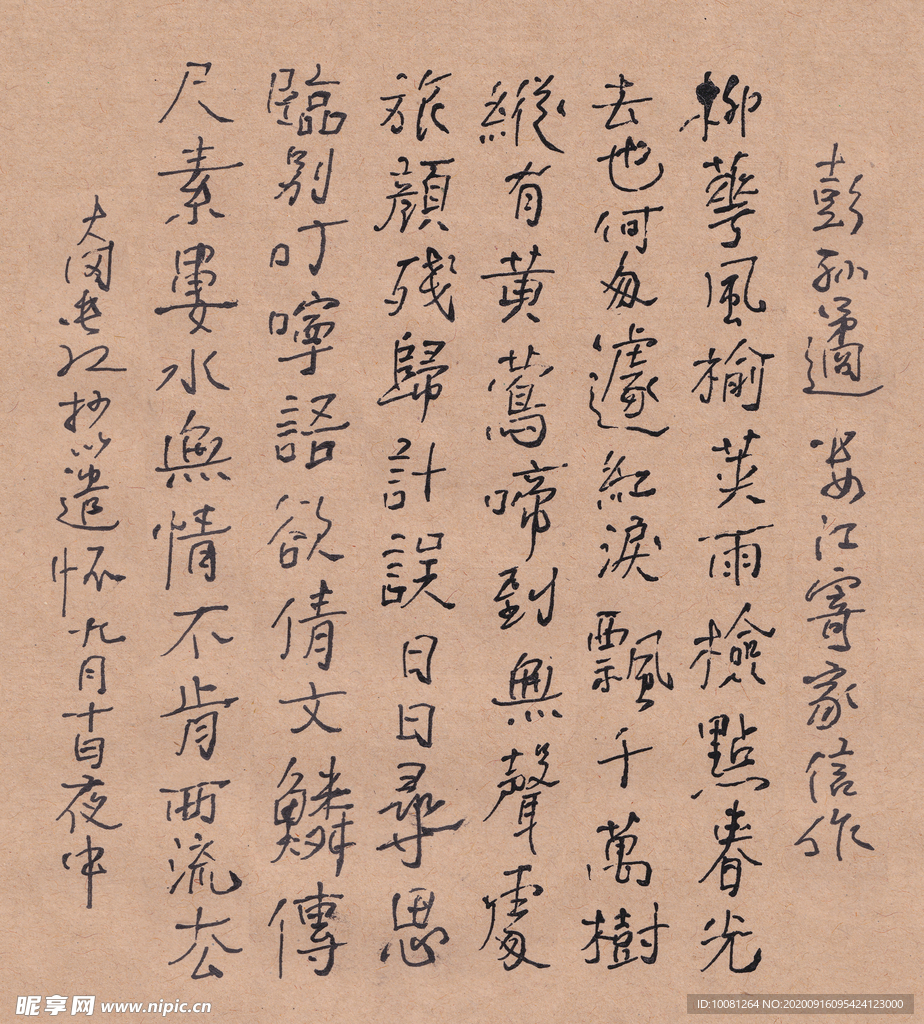 彭孫遹 婁江寄家信作
柳華風榆莢雨檢點春光
去也何匆遽紅淚飄千萬樹
縱有黃鶯啼到無聲處
旅顏殘歸計誤日日尋思
臨別叮嚀語欲倩文鱗傳
尺素婁水無情不肯西流去
抄以遣懷九月十日夜中
昵享网 www.nipic.cn
ID:10081264 NO:20200916095424123000